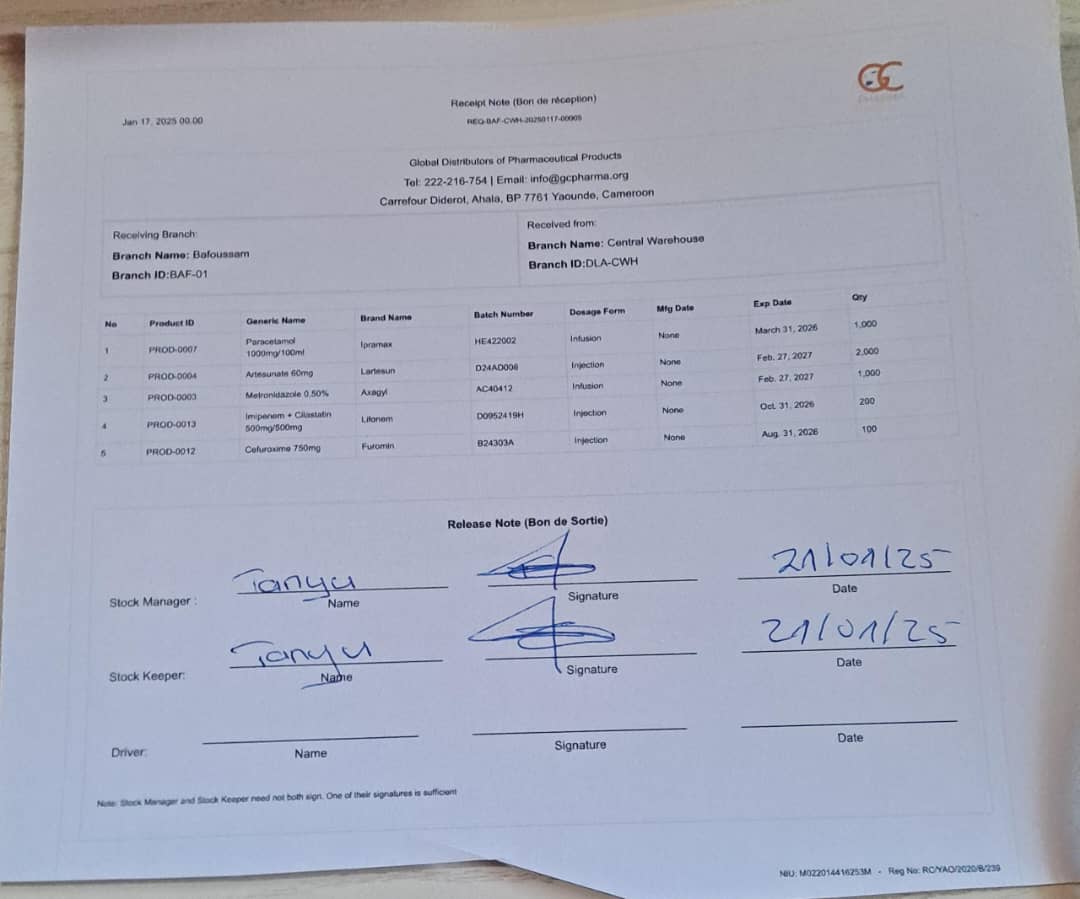 GC
PHARMA
Receipt Note (Bon de réception)
Jan 17, 2025 00.00
REQ-BAF-CWH-20250117-00005
Global Distributors of Pharmaceutical Products
Tel: 222-216-754 | Email: info@gcpharma.org
Carrefour Diderot, Ahala, BP 7761 Yaounde, Cameroon
Receiving Branch:
Branch Name: Bafoussam
Branch ID:BAF-01
Received from:
Branch Name: Central Warehouse
Branch ID:DLA-CWH
No Product ID Generic Name Brand Name Batch Number Dosage Form Mfg Date Exp Date Qty
1 PROD-0007 Paracetamol 1000mg/100ml Ipramax HE422002 Infusion None March 31, 2026 1,000
2 PROD-0004 Artesunate 60mg Lartesun D24AD008 Injection None Feb. 27, 2027 2,000
3 PROD-0003 Metronidazole 0,50% Axagyl AC40412 Infusion None Feb. 27, 2027 1,000
4 PROD-0013 Imipenem + Cilastatin 500mg/500mg Litonem D0952419H Injection None Oct. 31, 2026 200
5 PROD-0012 Cefuroxime 750mg Furomin B24303A Injection None Aug. 31, 2026 100
Release Note (Bon de Sortie)
Stock Manager : Tanyu 21/01/25
Name Signature Date
Stock Keeper: Tanyu 21/01/25
Name Signature Date
Driver:
Name Signature Date
Note: Stock Manager and Stock Keeper need not both sign. One of their signatures is sufficient
NIU: M022014416253M - Reg No: RC/YAO/2020/B/239